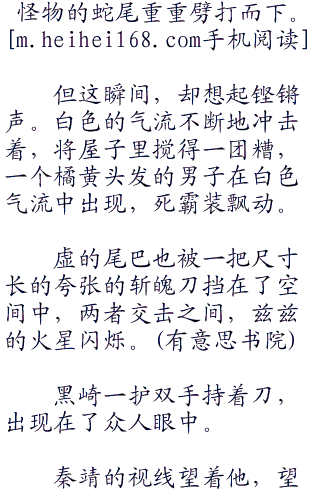 怪物的蛇尾重重劈打而下。
[m.heihei168.com手机阅读]
但这瞬间，却想起铿锵
声。白色的气流不断地冲击
着，将屋子里搅得一团糟，
一个橘黄头发的男子在白色
气流中出现，死霸装飘动。
虚的尾巴也被一把尺寸
长的夸张的斩魄刀挡在了空
间中，两者交击之间，兹兹
的火星闪烁。(有意思书院)
黑崎一护双手持着刀，
出现在了众人眼中。
秦靖的视线望着他，望